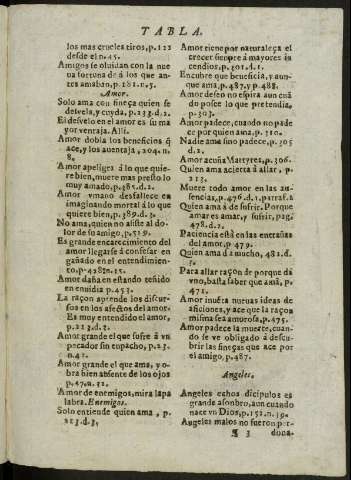 TABLA.
los mas crueles tiros, p. 122
desde el n. 45.
Amigos se oluidan con la nue
ua fortuna de à los que an-
tes amaban, p. 181. n. 5.
Amor.
Solo ama con fineça quien se
desvela, y cuyda, p. 233. d. 2.
El desvelo en el amor es su ma
yor ventaja. Alli.
Amor dobla los beneficios q̃
ace, y los auentaja, 204. n.
8.
Amor apeligra à lo que quie-
re bien, muere mas presto lo
muy amado, p. 385. d. 2.
Amor vmano desfallece en
imaginando mortal à lo que
quiere bien, p. 389. d. 3.
No ama, quien no asiste al do-
lor de su amigo, p. 519.
Es grande encarecimiento del
amor llegarse à confesar en
gañado en el entendimien-
to, p. 428. n. 15.
Amor daña en estando teñido
en enuidia p. 453.
La raçon aprende los discur-
sos en los afectos del amor.
Es muy entendido el amor,
p. 223. d. 2.
Amor grande el que sufre à vn
pecador sin empacho, p. 23.
n. 42.
Amor grande el que ama, y o-
bra bien ausente de los ojos
p. 47. n. 32.
Amor de enemigos, mira la pa
labra. Enemigos.
Solo entiende quien ama, p.
223. d. 3.
Amor tiene por naturaleça el
crecer siempre à mayores in
cendios, p. 301. d. 1.
Encubre que beneficia, y aun-
que ama, p. 487. y p. 488.
Amor deseo no espira aun cuã
do posee lo que pretendia,
p. 303.
Amor padece, cuando no pade
ce por quien ama, p. 310.
Nadie ama sino padece, p. 305
d. 2.
Amor acuña Martyres, p. 306.
Quien ama acierta à allar, p.
213.
Muere todo amor en las au-
sencias, p. 476. d. 1. parraf. 2
Quien ama à de sufrir. Porque
amar es amar, y sufrir, pag.
478. d. 2.
Paciencia està en las entrañas
del amor. p. 479.
Quien ama da mucho, 482. d.
3.
Para allar raçon de porque da
vno, basta saber que amà, p.
471.
Amor inuẽta nueuas ideas de
aficiones, y ace que la raçon
misma sea amorosa, p. 475.
Amor padece la muerte, cuan-
do se ve obligado à descu-
brir las fineças que ace por
el amigo, p. 487.
Angeles.
Angeles echos dicipulos es
grande asombro, aun cuando
nace vn Dios, p. 152. n. 19.
Angeles malos no fueron per-
¶ 3 dona-